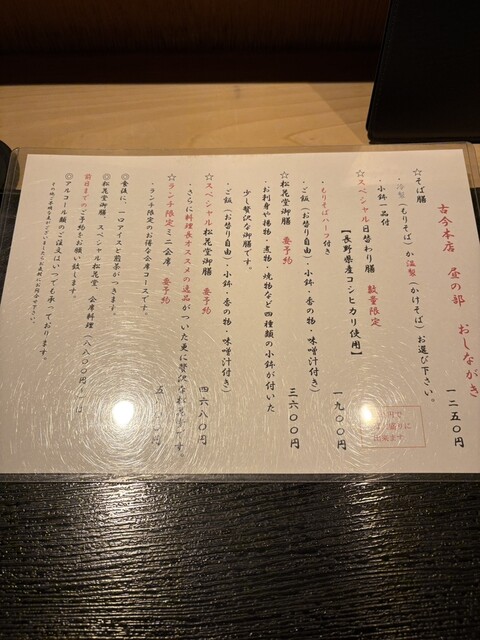 古今本店 昼の部 おしながき
☆そば膳 一二五〇円
・冷製(もりそば)か温製(かけそば)お選び下さい。
・小鉢一品付
☆スペシャル日替わり膳 数量限定 一九〇〇円
【長野県産コシヒカリ使用】
・もりそばハーフ付き
・ご飯(お替り自由)・小鉢・香の物・味噌汁付き)
☆松花堂御膳 要予約 三六〇〇円
・お刺身や揚物・煮物・焼物など四種類の小鉢が付いた
少し贅沢な御膳です。
・ご飯(お替り自由)・小鉢・香の物・味噌汁付き)
☆スペシャル松花堂御膳 要予約 四六八〇円
・さらに料理長オススメの逸品がついた更に贅沢な松花堂です。
☆ランチ限定ミニ会席 要予約 五
円
・ランチ限定のお得な会席コースです。
◎食後に、一口アイスと煎茶がつきます。
◎松花堂御膳、スペシャル松花堂、会席料理(八八〇〇円~)は
前日までのご予約をお願い致します。
◎アルコール類のご注文はいつでも承っております。
円で
盛りに
出来ます